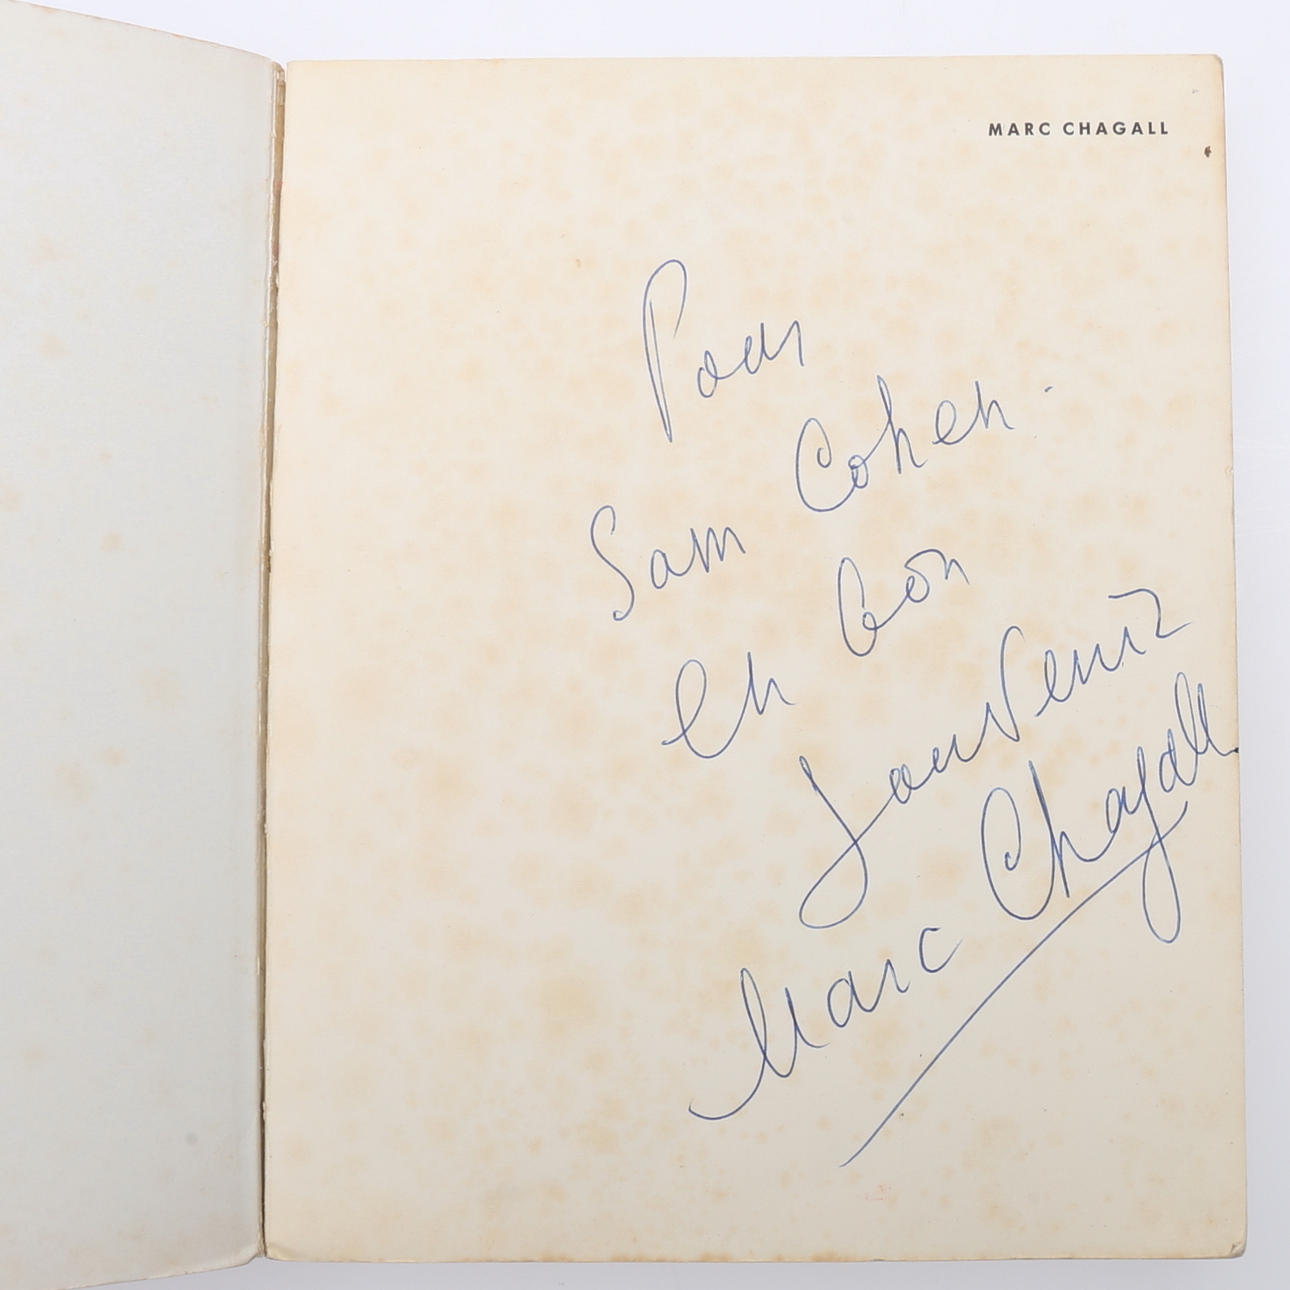 MARC CHAGALL
Pour
Sam Cohen
en bon
souvenir
Marc Chagall